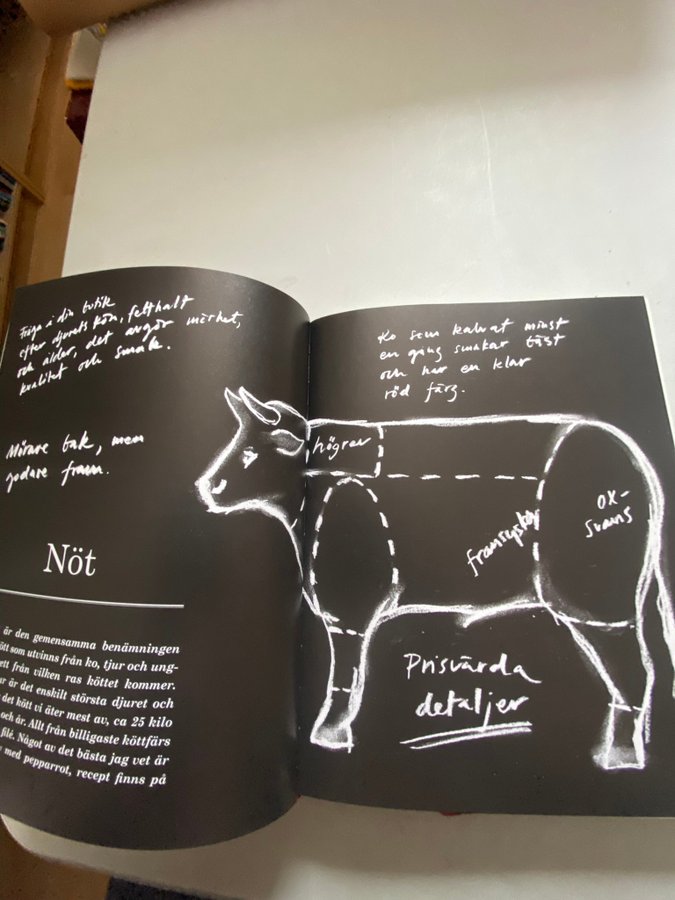 Fråga i din butik
efter djurets kön, fetthalt
och ålder, det avgör mörhet,
kvalitet och smak.
Mörare bak, men
godare fram.
Nöt
är den gemensamma benämningen
ött som utvinns från ko, tjur och ung-
ett från vilken ras köttet kommer.
ur är det enskilt största djuret och
det kött vi äter mest av, ca 25 kilo
och år. Allt från billigaste köttfärs
filé. Något av det bästa jag vet är
med pepparrot, recept finns på
Ko som kalvat minst
en gång smakar bäst
och har en klar
röd färg.
högrev
fransyska
ox-
svans
Prisvärda
detaljer